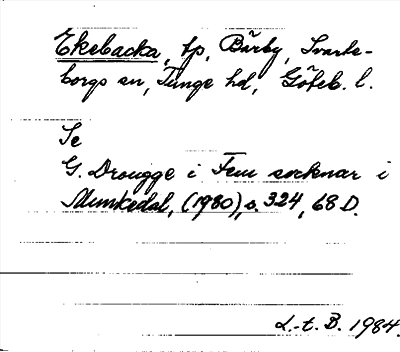 Ekebacka, tp, Bärby, Svarte-
borgs sn, Tunge hd, Göteb. l.
Se
G. Drougge i Fem socknar i
Munkedal, (1980), s. 324, 68 D.
L.-t. B. 1984.